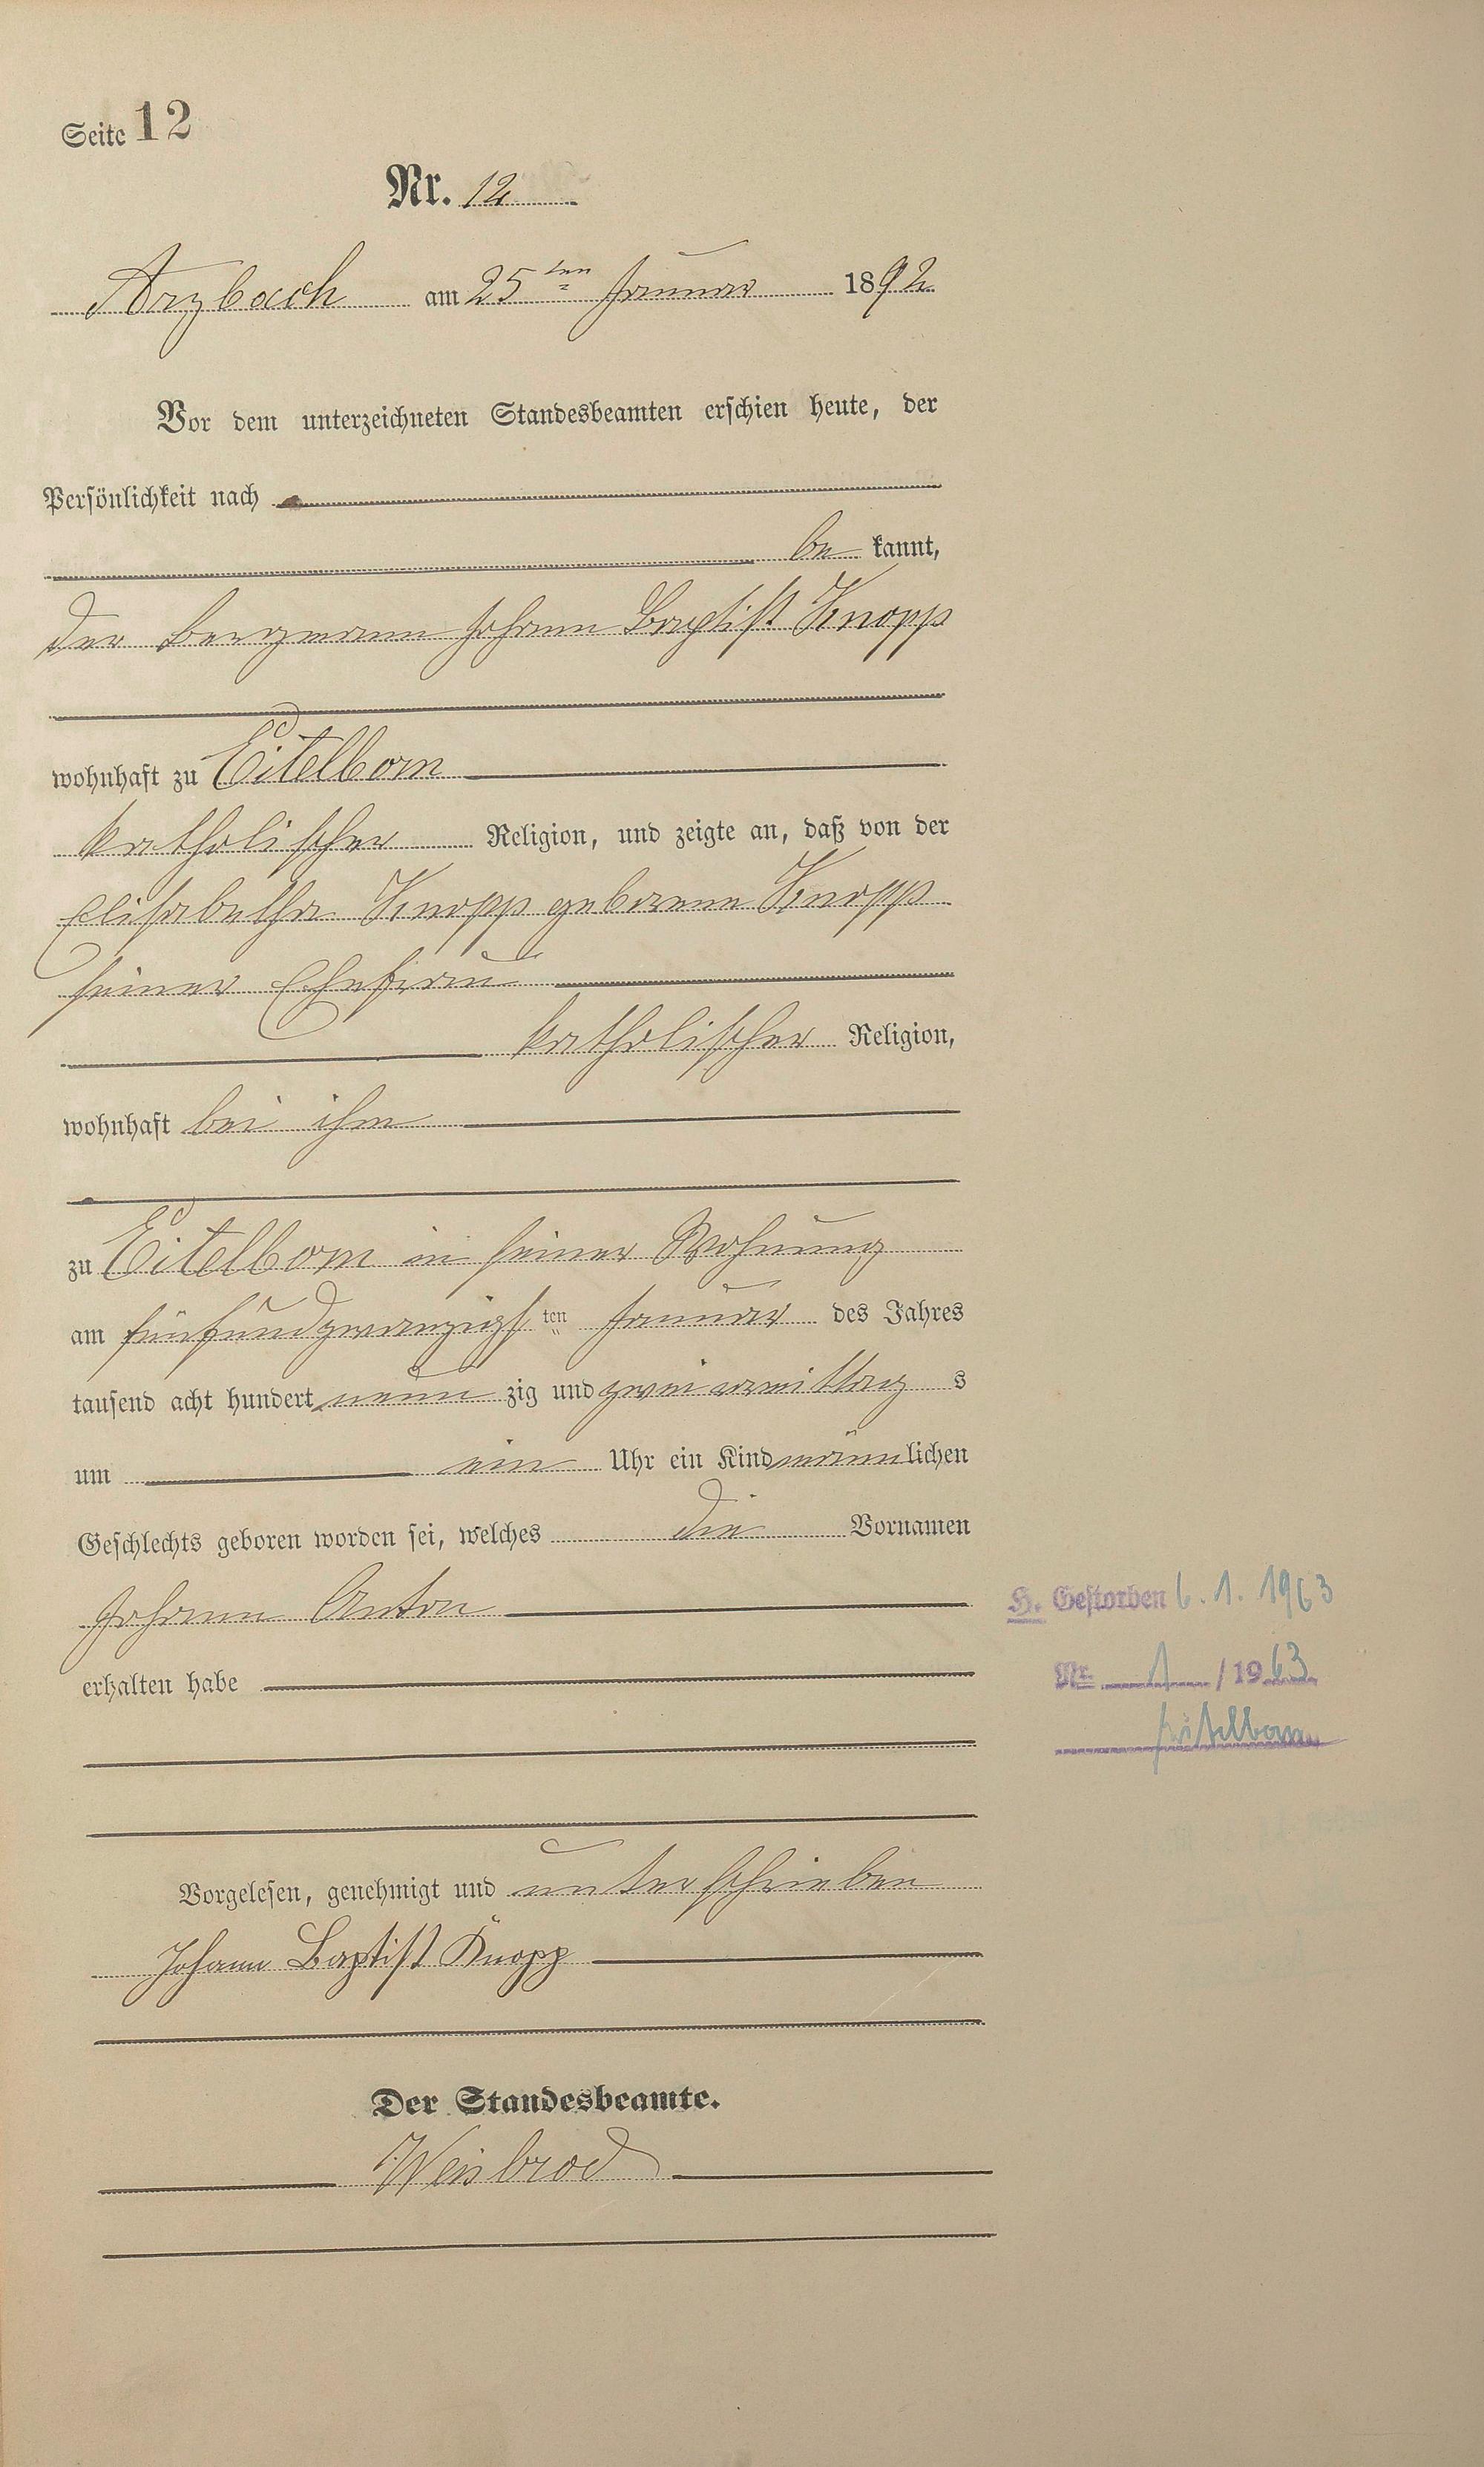 Seite 12
Nr. 12
Arzbach am 25ten Januar 1892
Vor dem unterzeichneten Standesbeamten erschien heute, der
Persönlichkeit nach
be kannt,
der Bergmann Johann Baptist Knopp
wohnhaft zu Eitelborn
katholischer Religion, und zeigte an, daß von der
Elisabetha Knopp geborene Knopp
seiner Ehefrau
katholischer Religion,
wohnhaft bei ihm
zu Eitelborn in seiner Wohnung
am fünfundzwanzigsten Januar des Jahres
tausend acht hundert neun zig und zwei vormittag s
um ein Uhr ein Kind männlichen
Geschlechts geboren worden sei, welches die Vornamen
Johann Anton
erhalten habe
H. Gestorben 6. 1. 1963
Nr. 1 / 1963
Eitelborn
Vorgelesen, genehmigt und unterschrieben
Johann Baptist Knopp
Der Standesbeamte.
Weisbrod